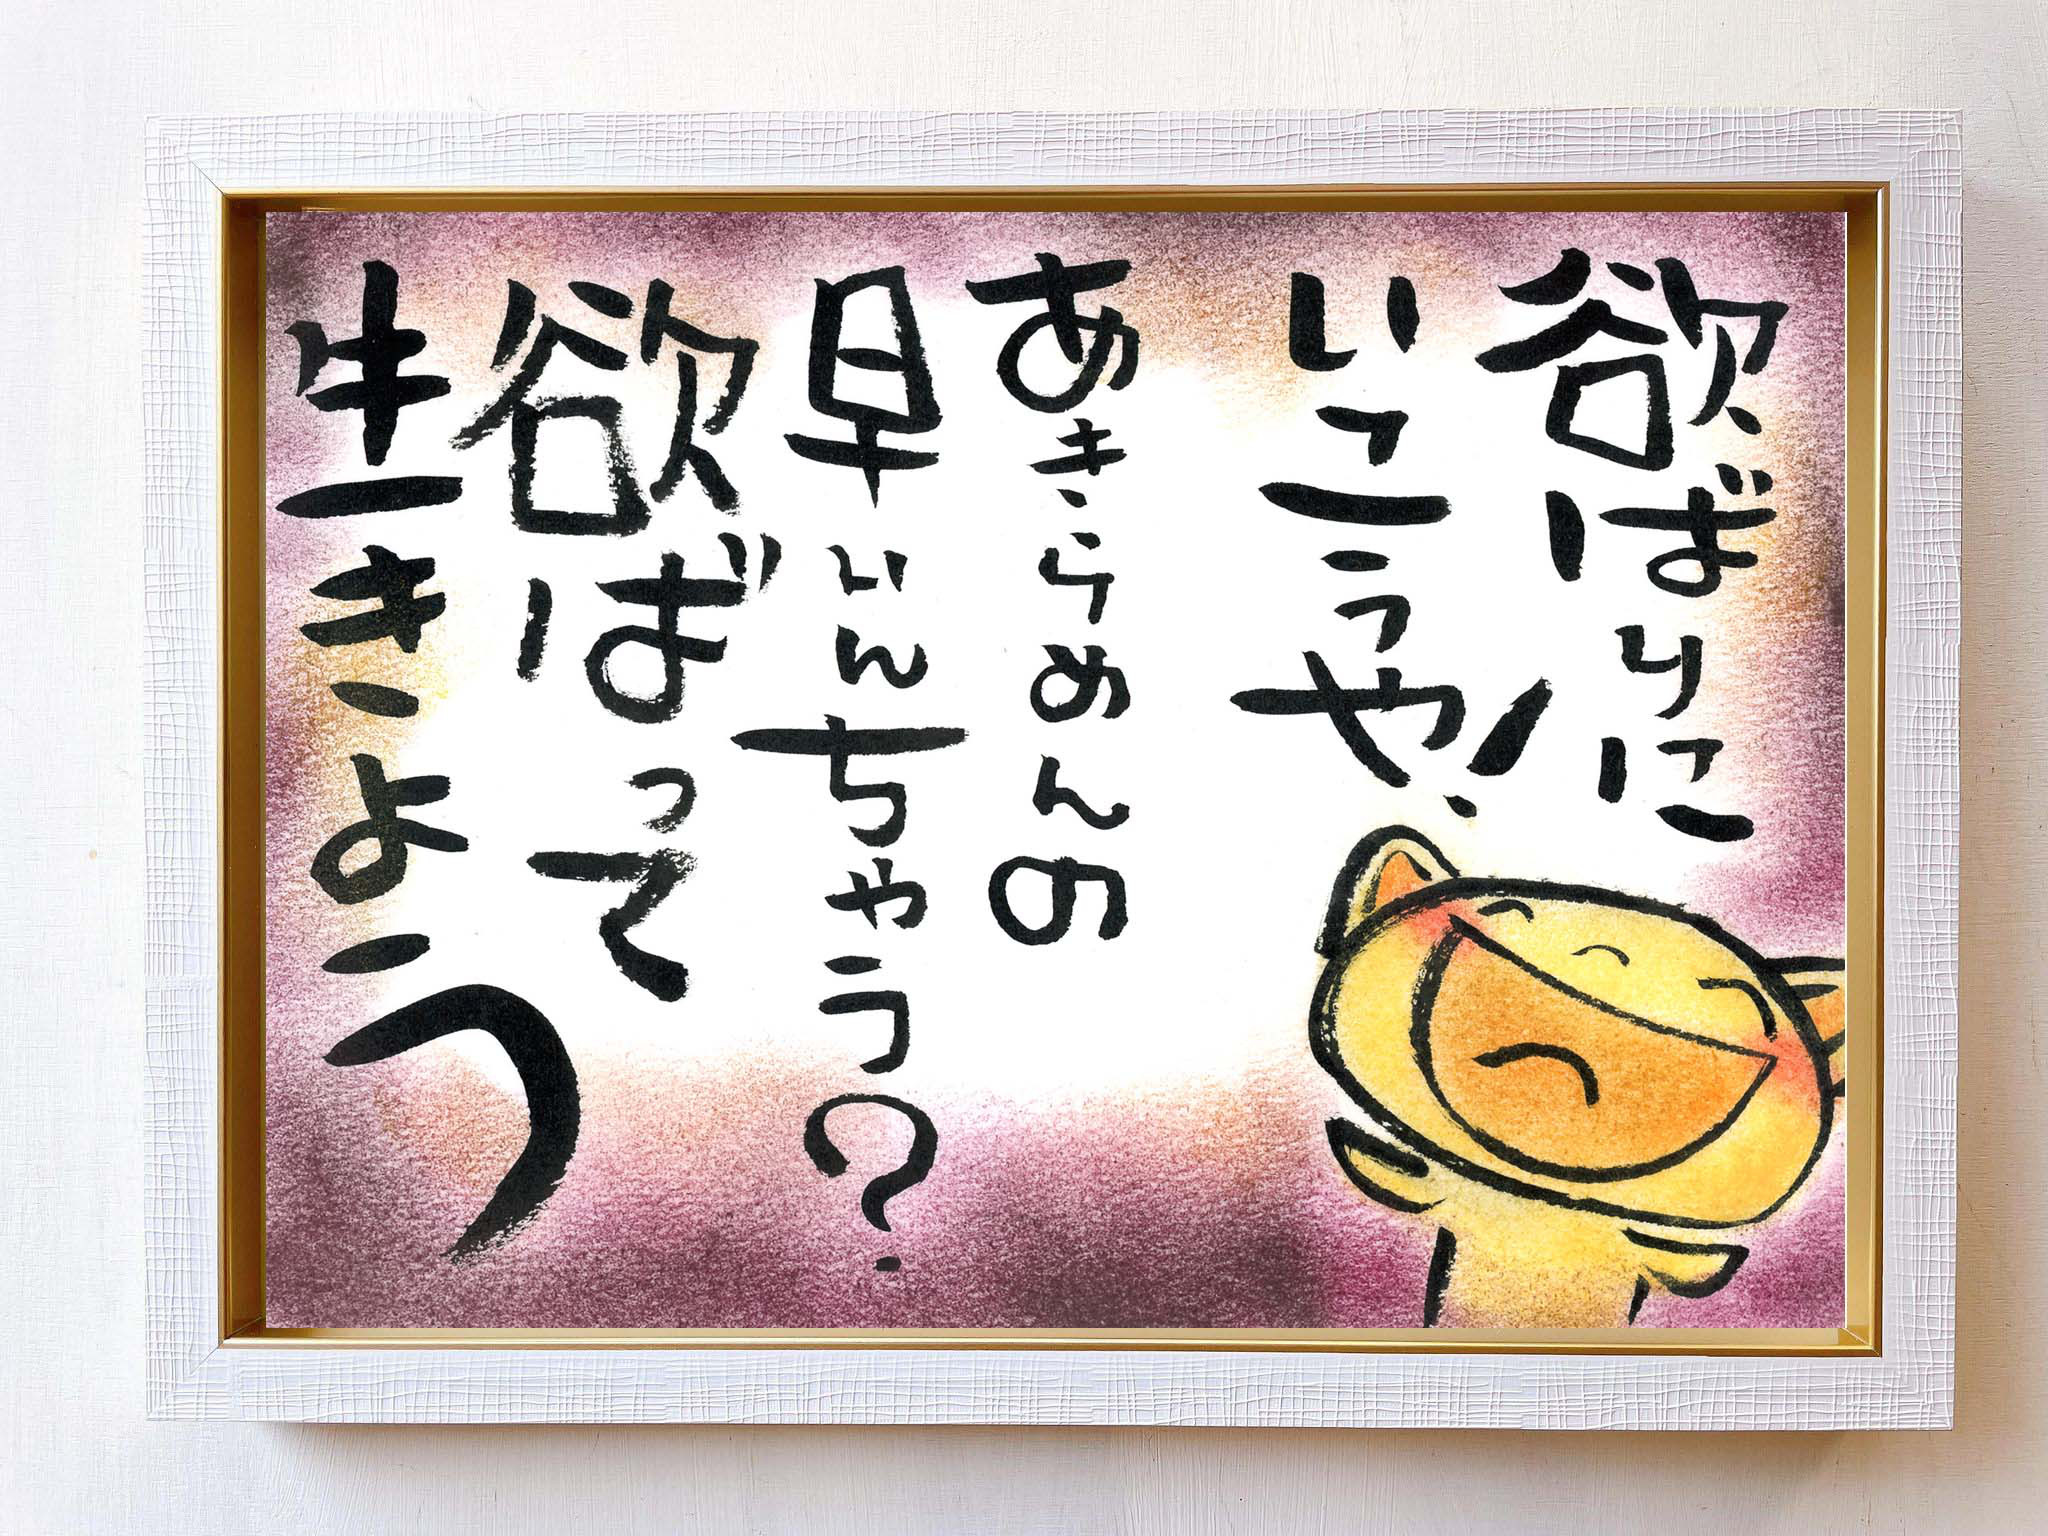 欲ばりに
いこうや!
あきらめんの
早いんちゃう?
欲ばって
生きよう